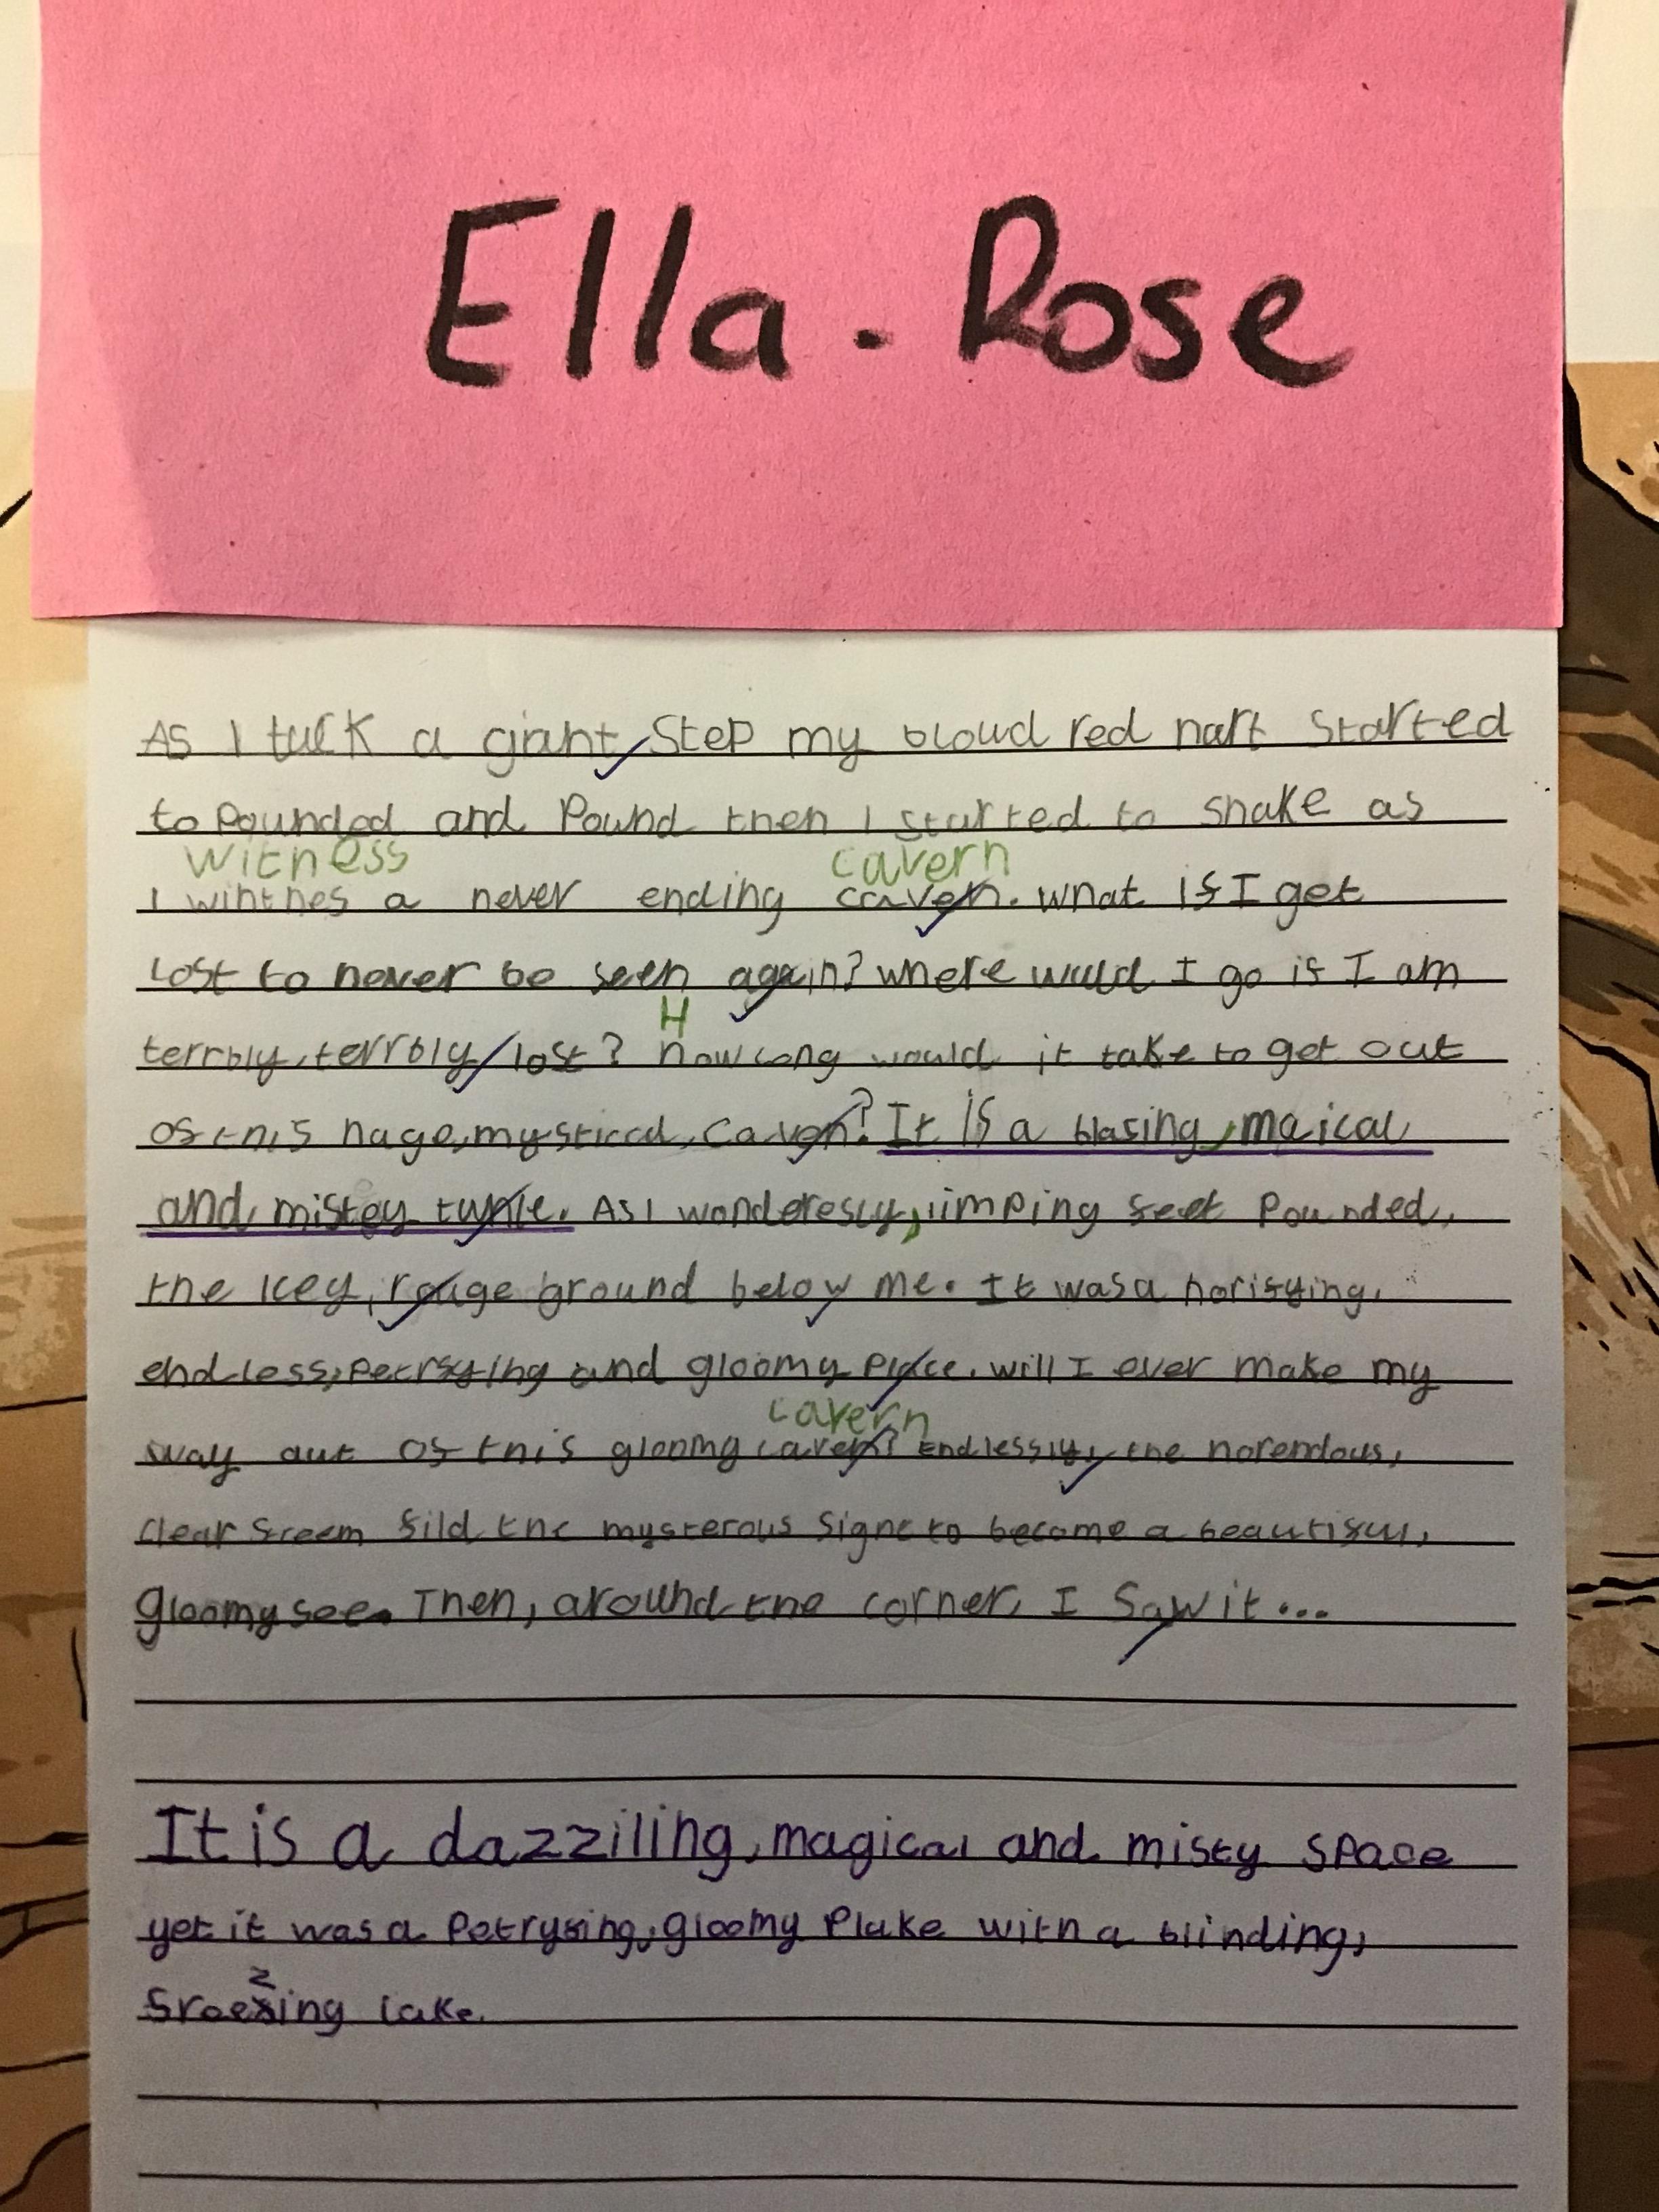 Ella.Rose
As I tuck a giant Step my bloud red hart Started
to pounded and Pound then I started to shake as
witness cavern
I winthes a never ending caven. what if I get
Lost to never be seen again? where would I go if I am
H
terrbly, terrbly lost? how long would it take to get out
of this hage, mysticcal, caven? It is a blasing, maical
and mistey tunle. As I wonderesly, limping feet Pounded,
the icey, rouge ground below me. It was a horifying,
endless, petrfying and gloomy place. will I ever make my
cavern
way out of this gloomy caven? Endlessly, the horendous,
clear streem fild the mysterous signt to become a beautiful,
gloomy see. Then, around the corner, I Saw it...
It is a dazziling, magical and misty space
yet it was a Petryfing, gloomy Plake with a blinding,
z
freezing lake.